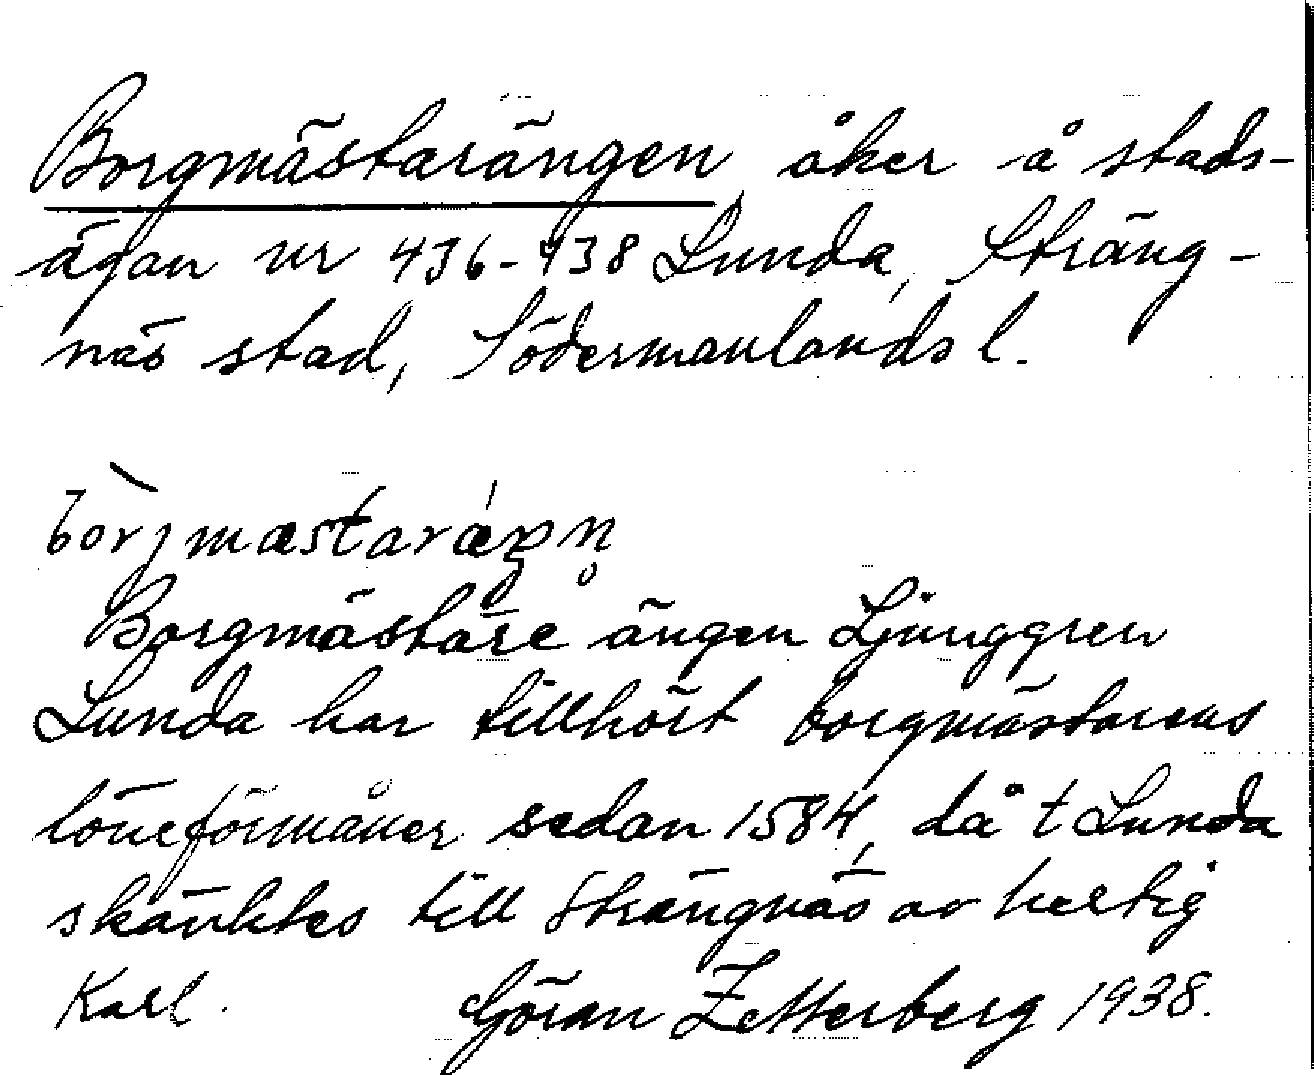 Borgmästarängen åker å stads-
ägan nr 436-438 Lunda, Sträng-
näs stad, Södermanlands l.
Borgmästare ängen Ljunggren
Lunda har tillhört borgmästarens
löneförmåner sedan 1584, då t Lunda
skänktes till Strängnäs av hertig
Karl. Göran Zetterberg 1938.